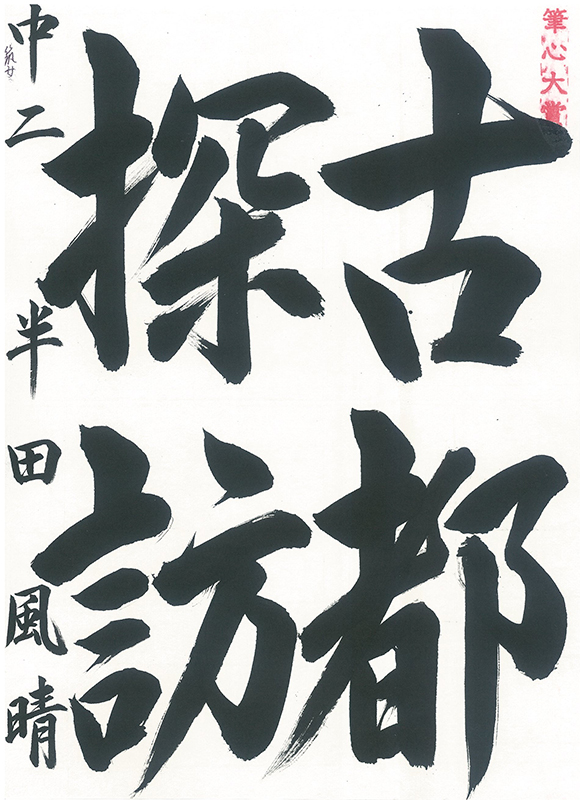 筆心大賞
古都
探訪
中二 半田風晴